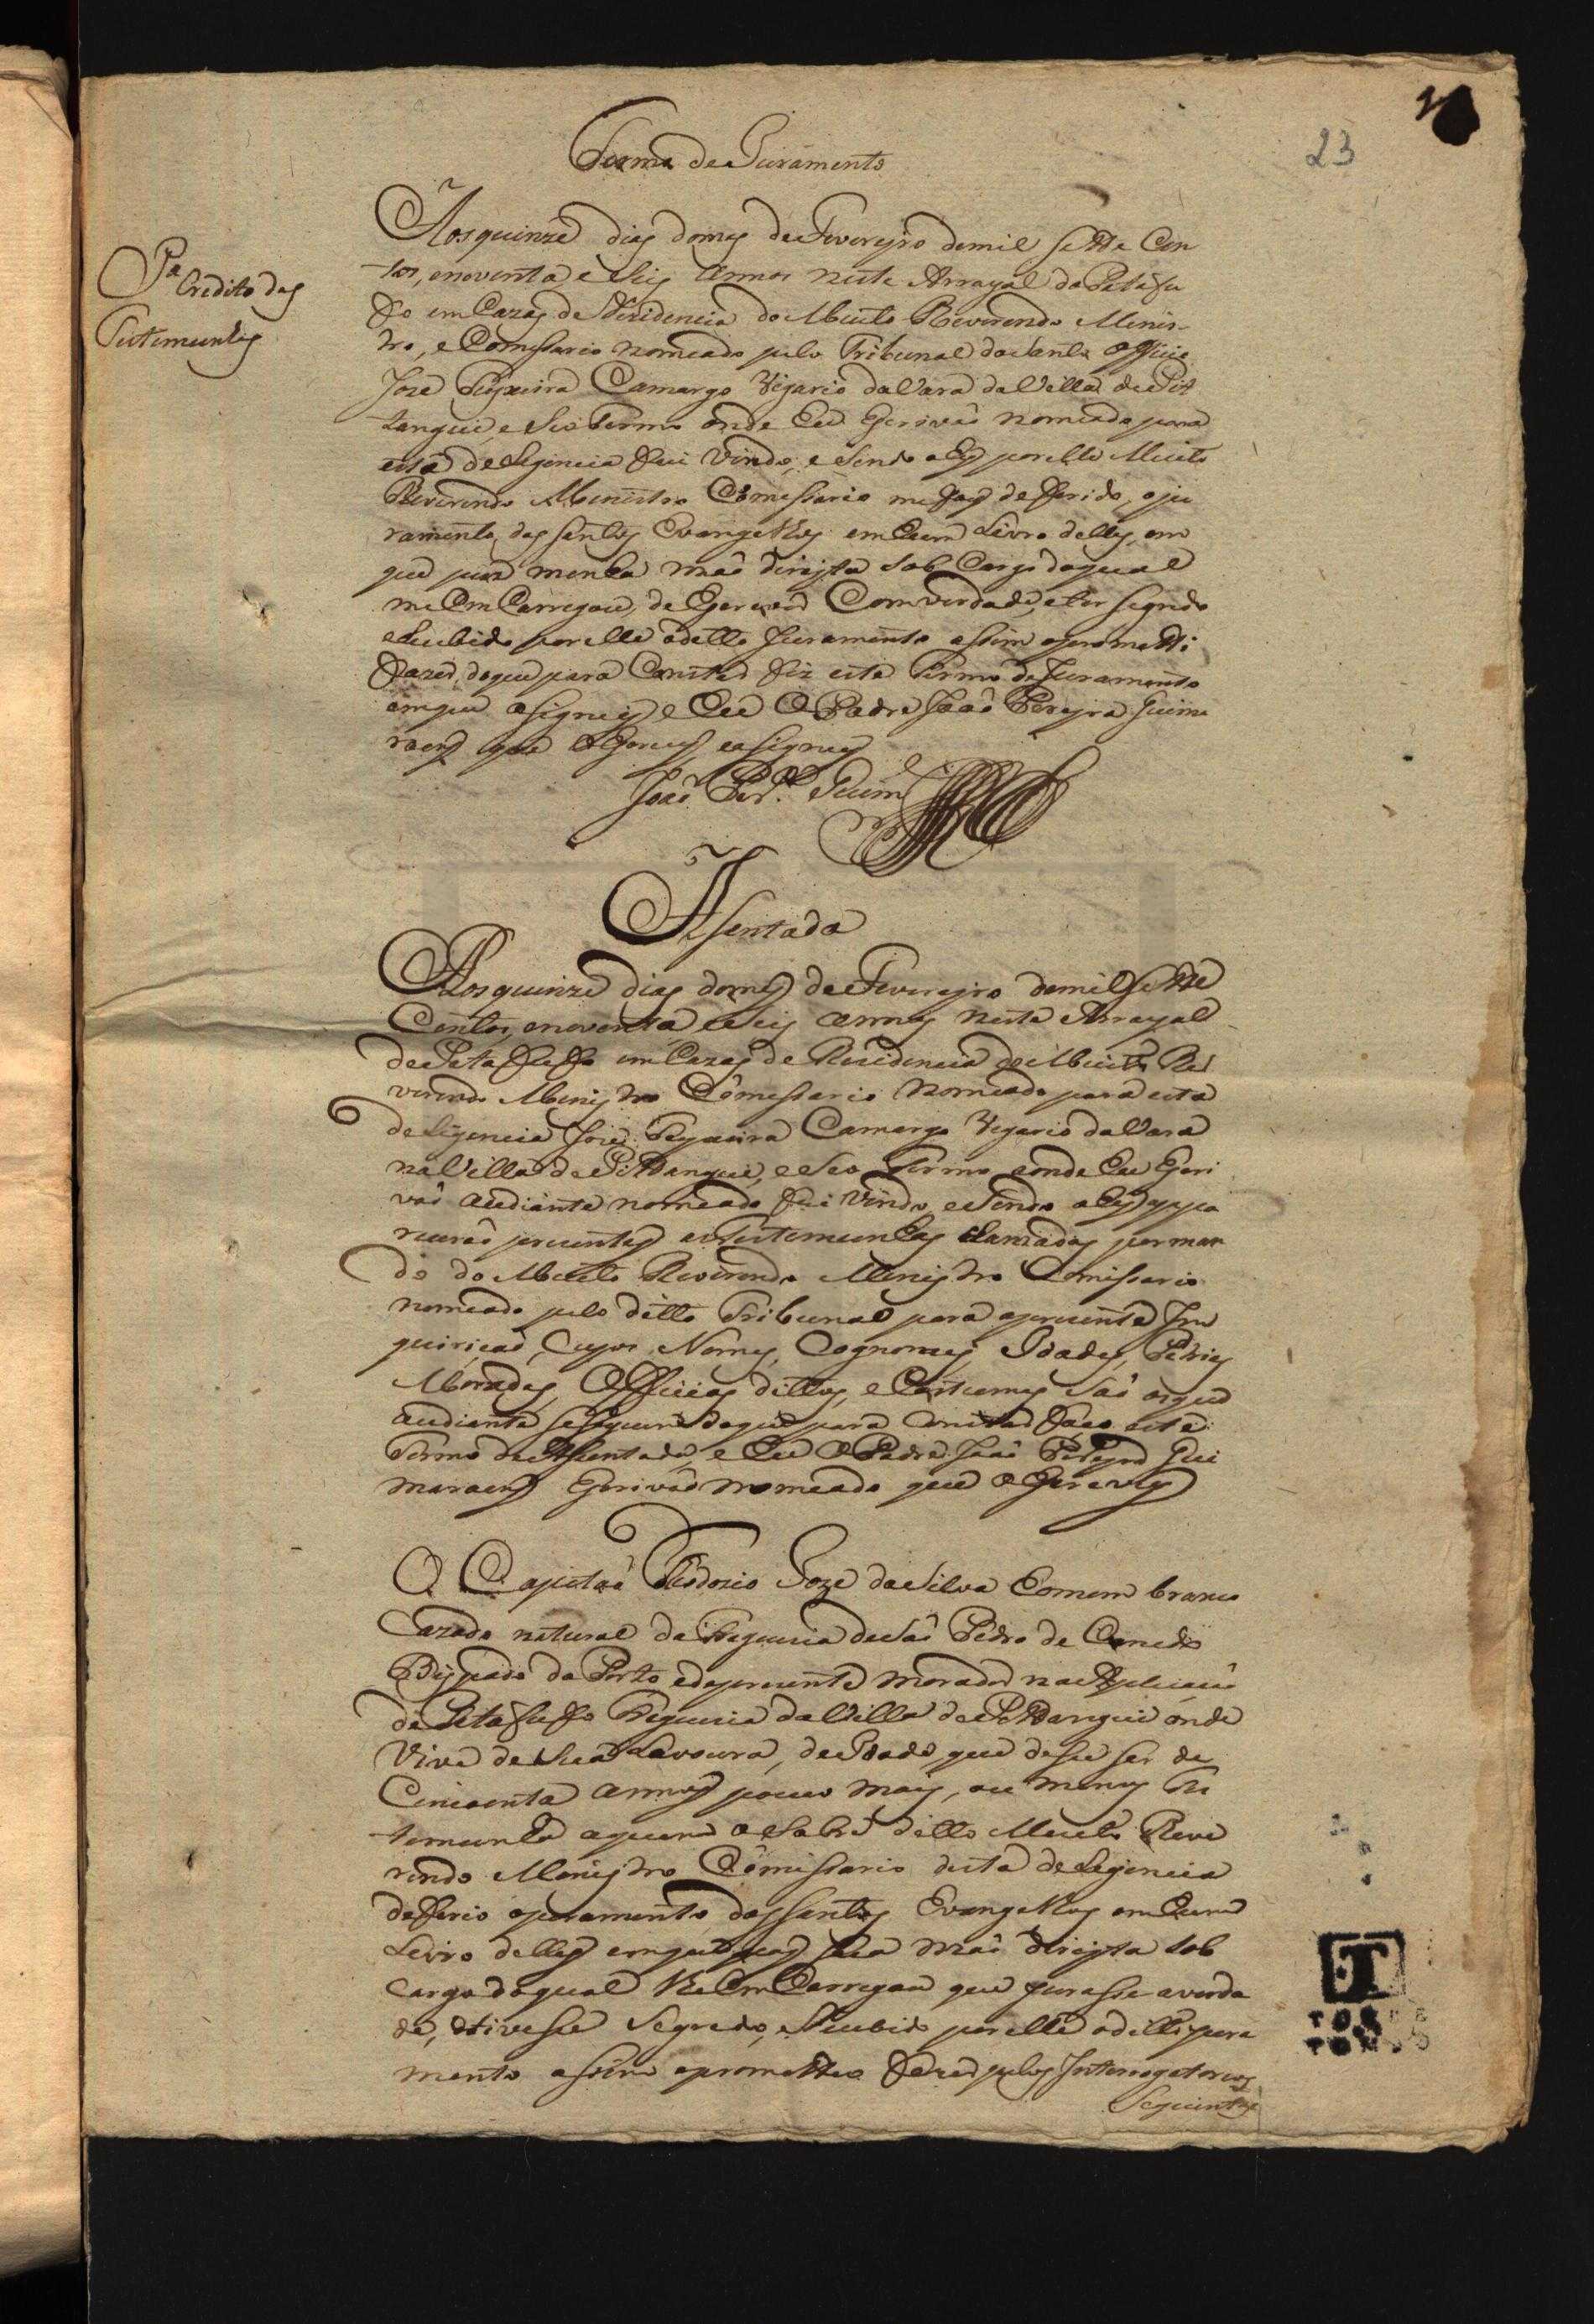 23
Termo de Juramento
Aos quinze dias do mes de Fevereyro de mil sette Cen
tos, enoventa, e seis annos neste Arrayal do Patafu
fo em Cazas de Rezidencia do Muito Reverendo Minis-
tro, e Comissario nomeado pelo Tribunal do Santo Officio
Jozé Teixeira Camargo Vigario da Vara da Villa de Pit
tangue, e Seo Termo onde Eu Escrivaõ nomeado para
esta deligencia fui Vindo, e Sendo ahy por elle Muito
Reverendo Ministro Comissario me foy defferido, o ju
ramento dos Santos Evangelhos em hum Livro delles, em
que puz minha maõ direyta Sob Cargo do qual
me Em Carregou, de Escrever Com verdade, e ter segredo
e Recebido por elle o ditto Juramento assim o prometti
fazer, do que para Constar fiz este Termo de Juramento
em que asigney e Eu O Padre Joaõ Pereyra Guima
raens que o Escrevy, e asigney
Joaõ Per.ª Guim
Pª
Credito das
Testemunhas
Asentada
Aos quinze dias do mes de Fevereyro de mil Sette
Centos, enoventa e seis annos neste Arrayal
de Patafufo em Cazas de Rezidencia do Muito Re
verendo Ministro Comissario nomeado para esta
deligencia Jozé Teyxeira Camargo Vigario da Vara
na Villa de Pittangue, e Seo Termo aonde Eu Escri
vaõ aodiante nomeado fui Vindo, e Sendo ahy appa
receraõ prezentes as Testemunhas chamadas por man
do do Muito Reverendo Ministro Comissario
nomeado pelo ditto Tribunal para aprezente In
quiriçaõ, Cujos Nomes, Cognomes, Idades, Patrias
Moradas, Officios, dittos, e Custumes Saõ os que
aodiante se seguem do que para Constar faço este
Termo de Asentada, e Eu O Padre Joaõ Pereyra Gui
maraens Escrivaõ nomeado que o Escrevy
O Capitaõ Theodozio Joze da Silva Homem branco
Cazado natural da Freguezia de Saõ Pedro de Canedo
Bispado do Porto e de prezente morador na Aplicaçaõ
de Patafufo Freguezia da Villa de Pittangui onde
Vive de Sua Lavoura, de Idade que disse ser de
Cincoenta annos pouco mais, ou menos Tes
temunha aquem o Sobre ditto Muito Reve
rendo Ministro Comissario desta deligencia
defferio o juramento dos Santos Evangelhos em hum
Livro delles em que poz sua maõ direyta sob
Cargo do qual lhe Em Carregou que jurasse averda
de, e tivesse Segredo, e Recebido por elle o ditto jura
mento assim o prometteo fazer pelos Interrogatorios
Seguintes
T
TOR
TOM